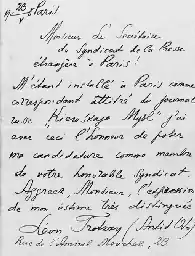 Paris
Monsieur Le Secrétaire
du Syndicat de la Presse
étrangère à Paris!
M'étant installé à Paris comme
correspondant attitré du journal
russe "Kievskaya Mysl" j'ai
avec ceci l'honneur de poser
ma candidature comme membre
de votre honorable Syndicat
Agréez, Monsieur, l'expression
de mon estime très distinguée
Leon Trotzky (Antid Oto)
Rue de l'Amiral Mouchez, 23